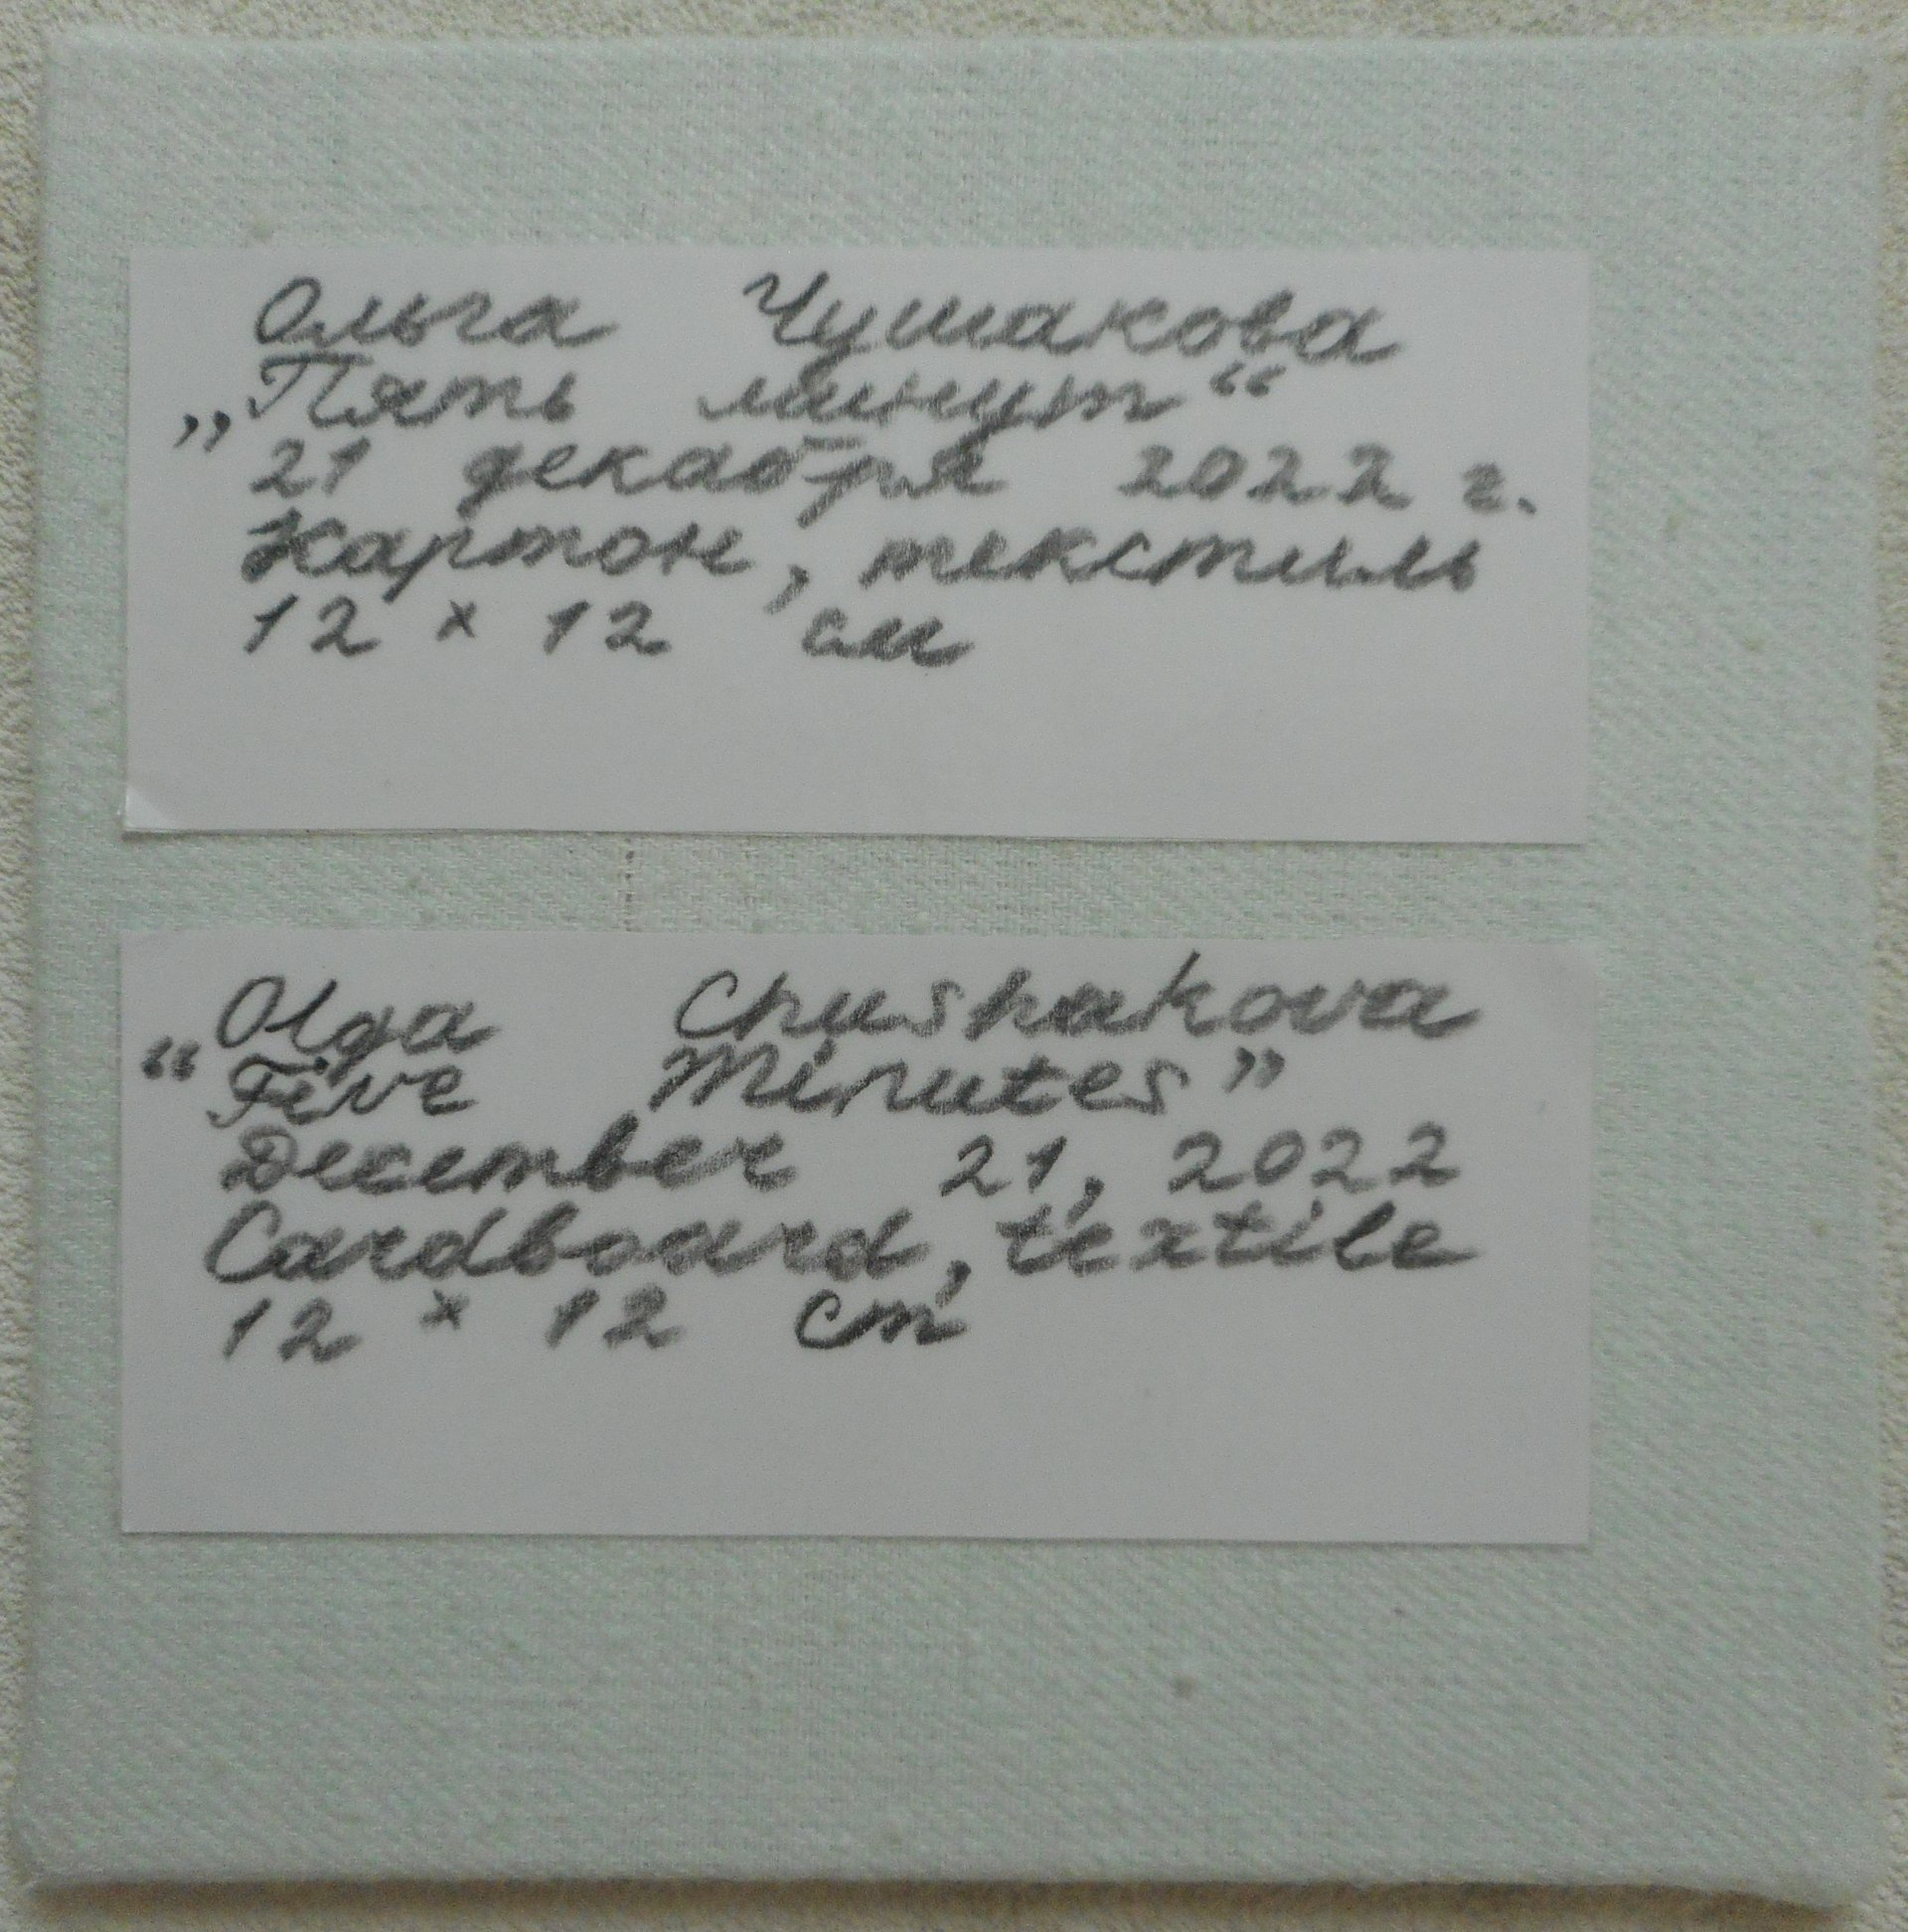 Ольга Чушакова
„Пять минут“
21 декабря 2022 г.
Картон, текстиль
12 × 12 см
Olga Chushakova
“Five Minutes”
December 21, 2022
Cardboard, textile
12 × 12 cm